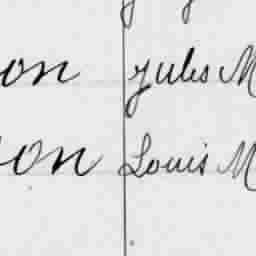 on Jules M
on Louis M